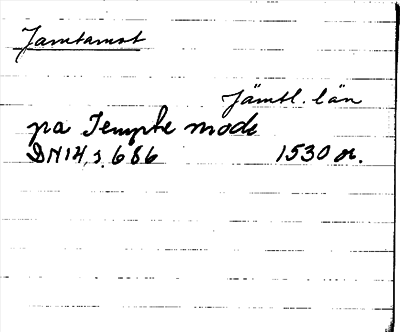 Jamtamot
Jämtl. län
pa Jempte mode
DN 14, s. 686 1530 or.